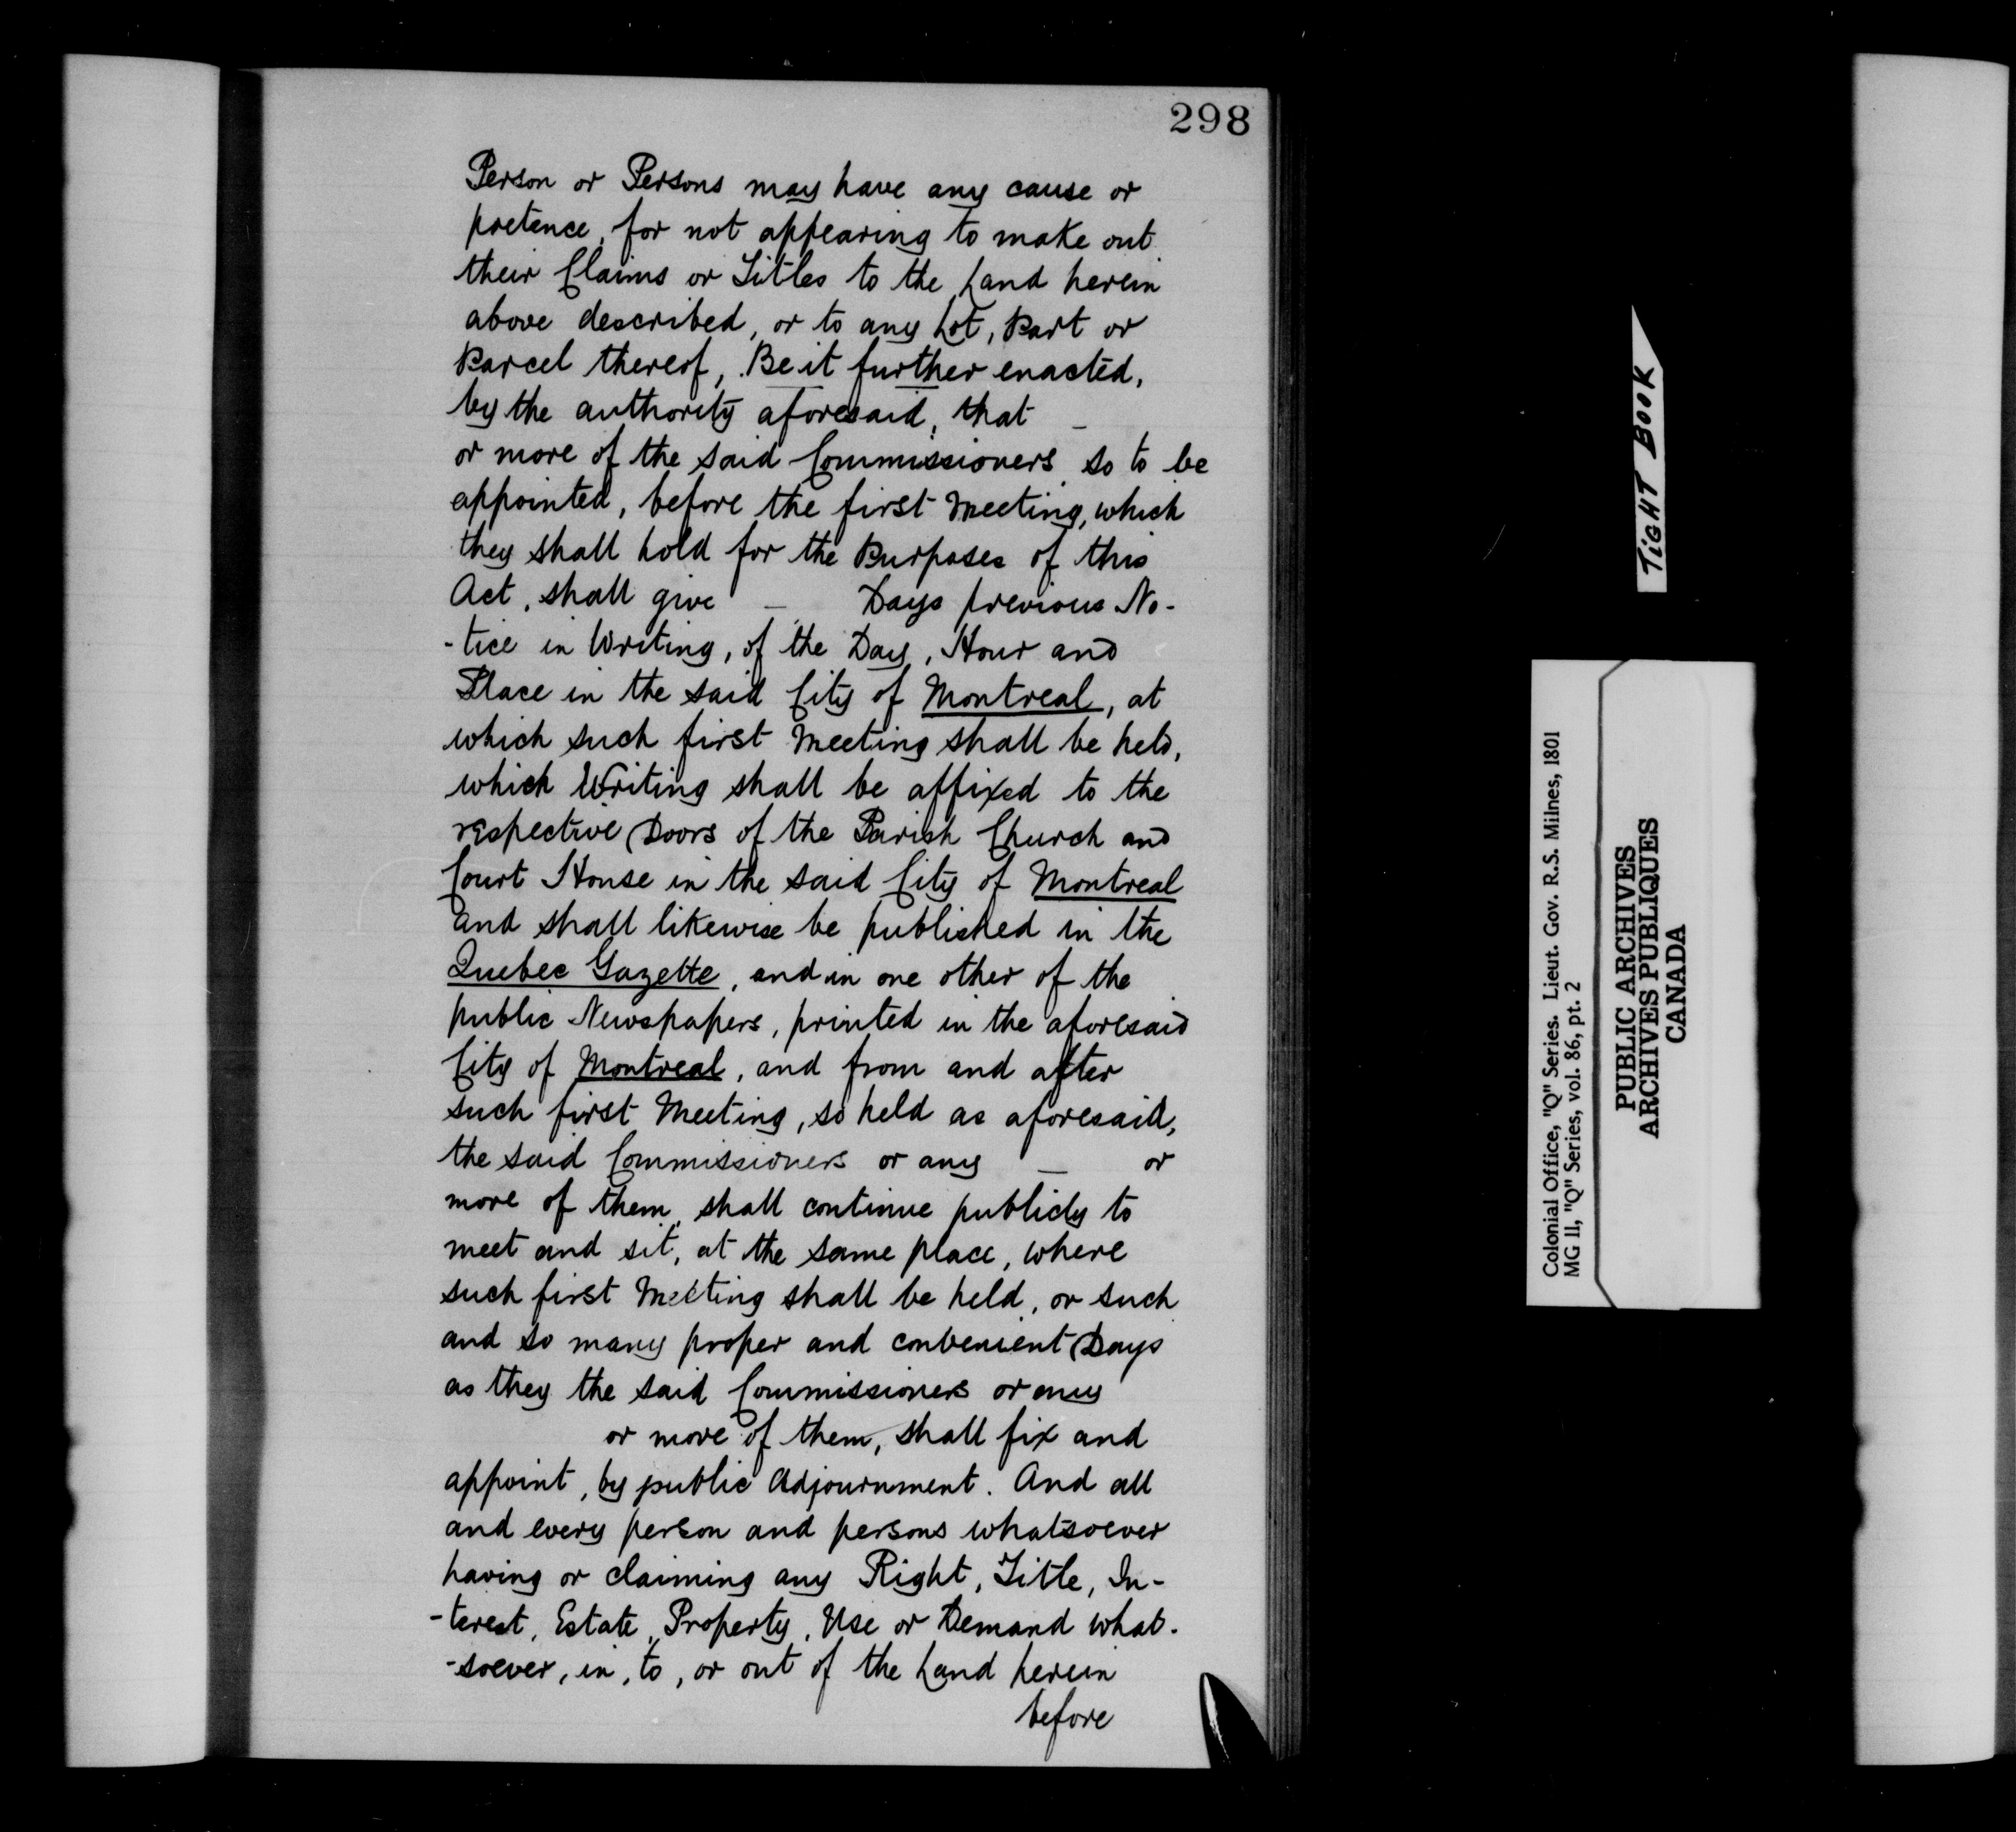 298
Person or Persons may have any cause or
pretence, for not appearing to make out
their Claims or Titles to the Land herein
above described, or to any Lot, Part or
Parcel thereof, Be it further enacted,
by the authority aforesaid, that _
or more of the said Commissioners so to be
appointed, before the first Meeting, which
they shall hold for the Purposes of this
Act, shall give _ Days previous No-
-tice in Writing, of the Day, Hour and
Place in the said City of Montreal, at
which such first Meeting shall be held,
which Writing shall be affixed to the
respective Doors of the Parish Church and
Court House in the said City of Montreal
and shall likewise be published in the
Quebec Gazette, and in one other of the
public Newspapers, printed in the aforesaid
City of Montreal, and from and after
such first Meeting, so held as aforesaid,
the said Commissioners or any _ or
more of them, shall continue publicly to
meet and sit, at the same place, where
such first Meeting shall be held, or such
and so many proper and convenient Days
as they the said Commissioners or any
or more of them, shall fix and
appoint, by public Adjournment. And all
and every person and persons whatsoever
having or claiming any Right, Title, In-
-terest, Estate, Property, Use or Demand what-
-soever, in, to, or out of the Land herein
before
TIGHT BOOK
Colonial Office, "Q" Series. Lieut. Gov. R.S. Milnes, 1801
MG 11, "Q" Series, vol. 86, pt. 2
PUBLIC ARCHIVES
ARCHIVES PUBLIQUES
CANADA